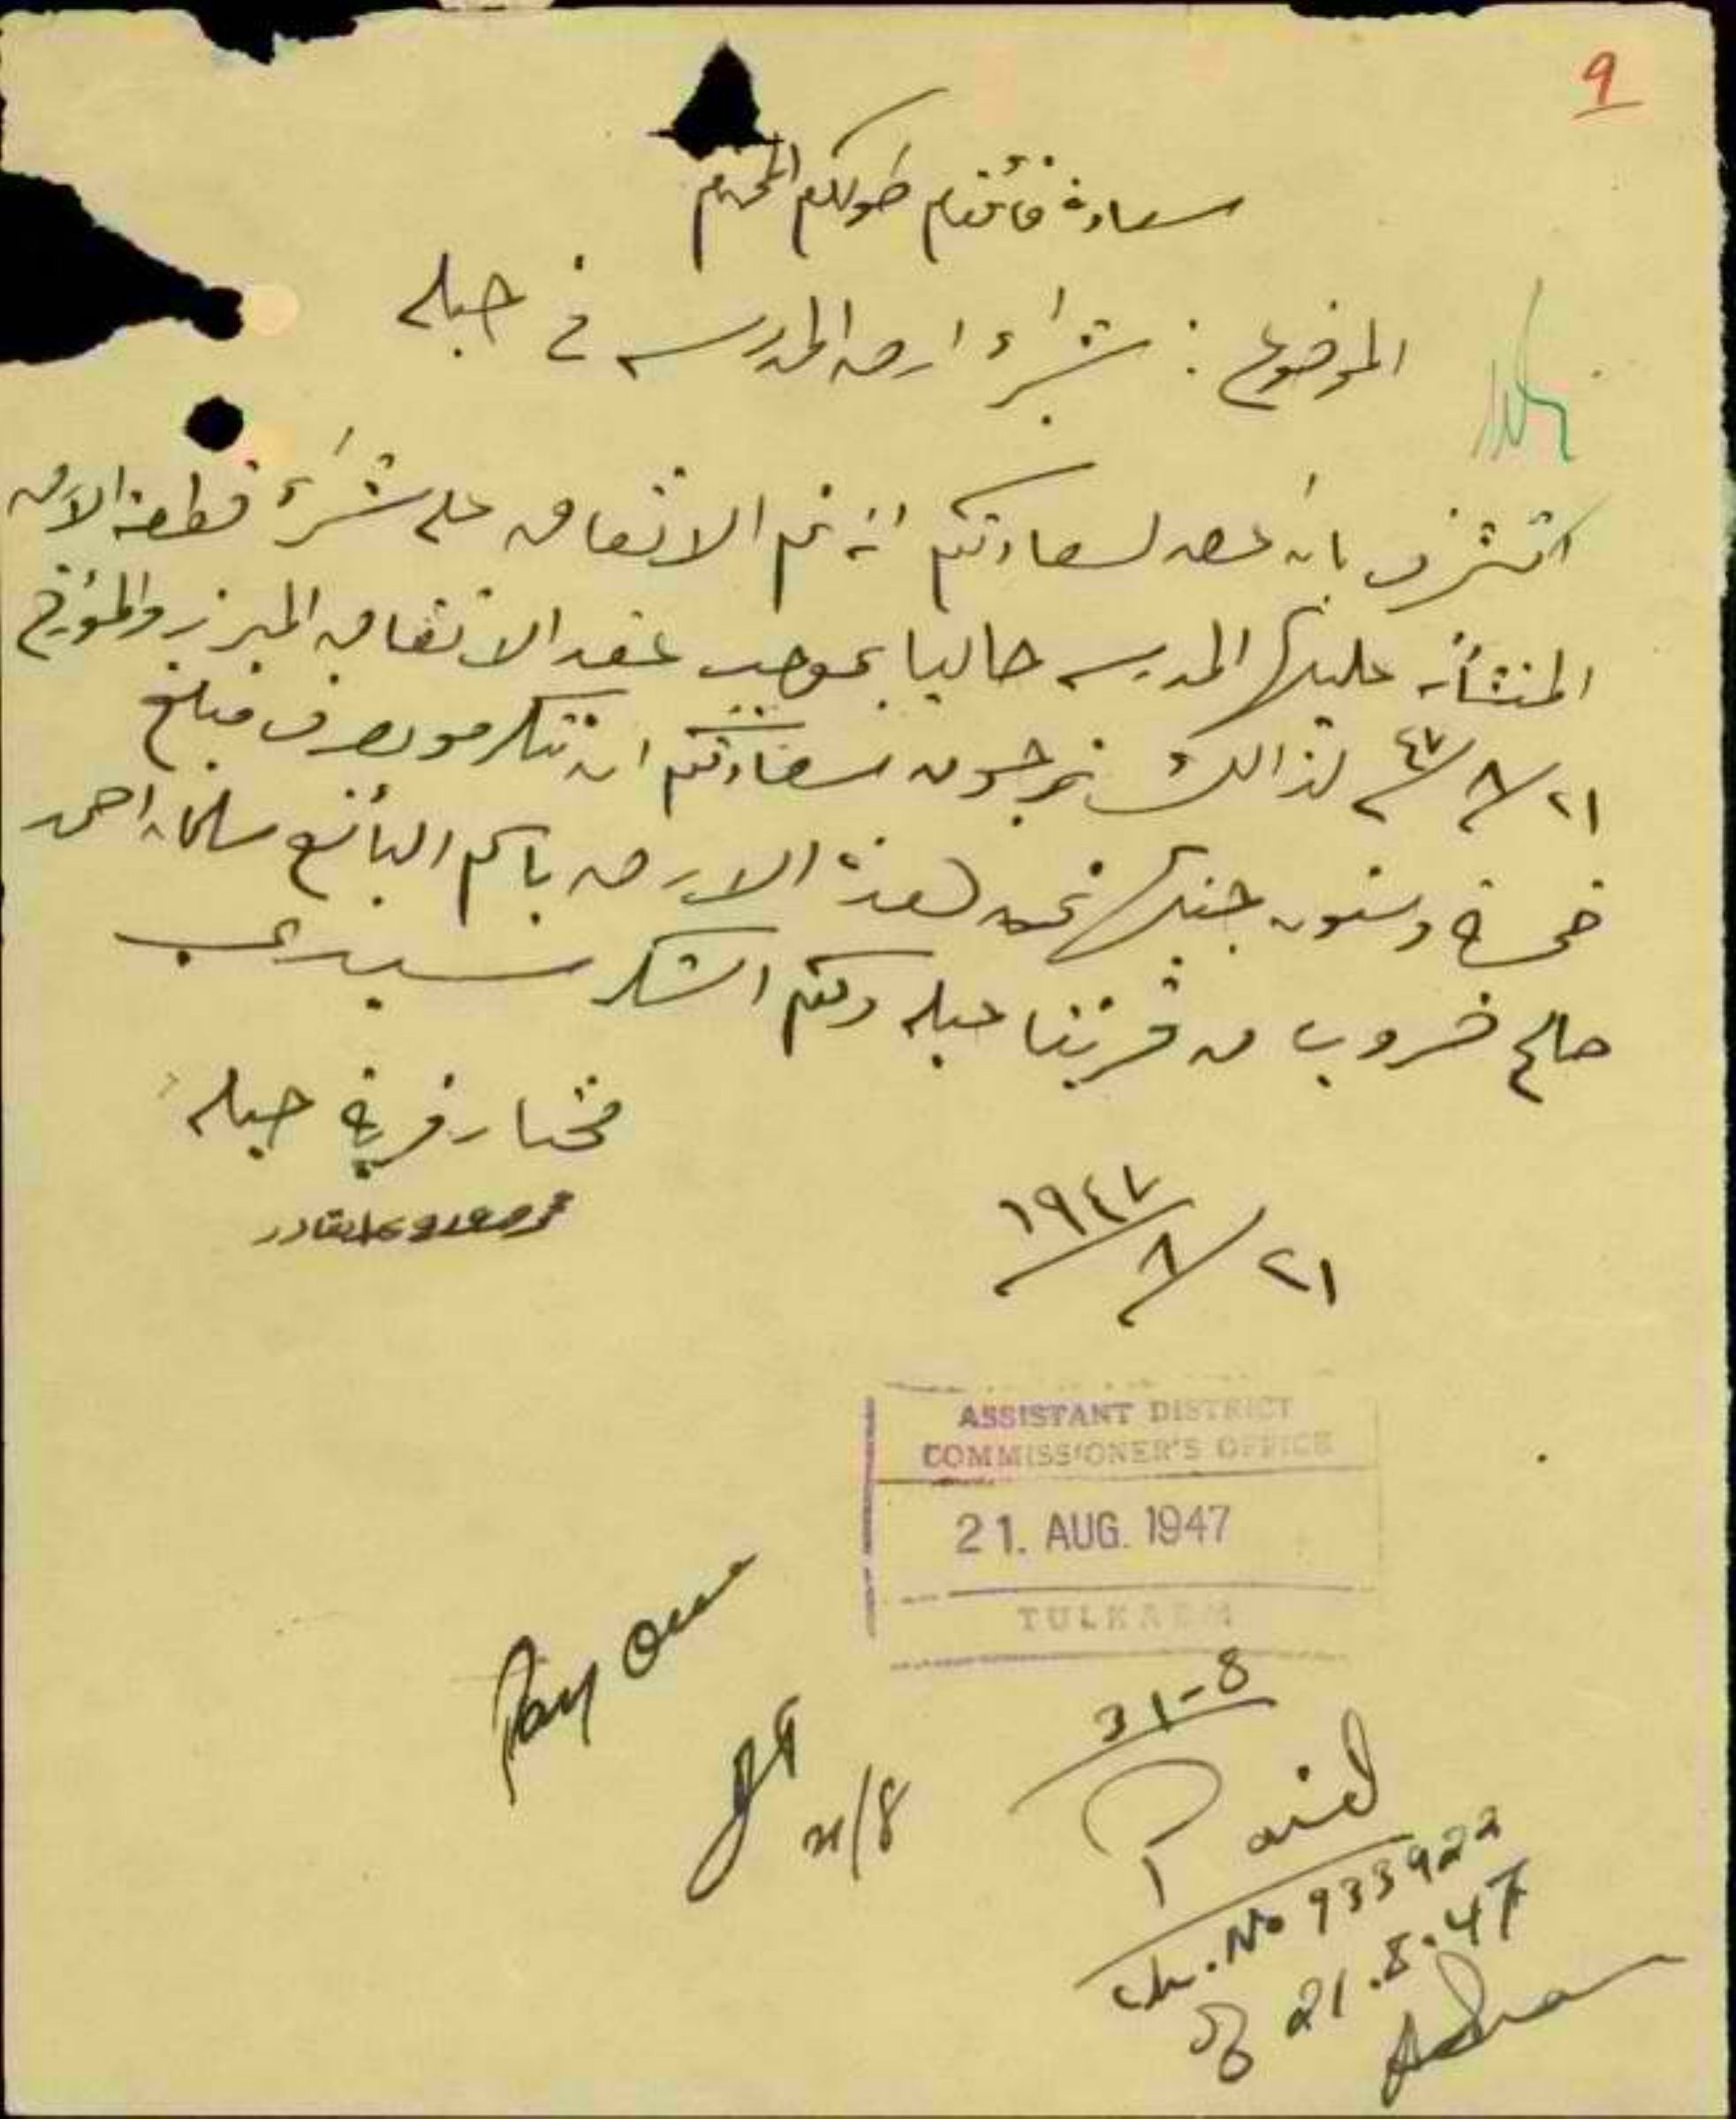 9
سعادة قائمقام طولكرم المحترم
الموضوع : شراء ارض المدرسه في حبله
اتشرف بان اعرض لسعادتكم انه تم الاتفاق على شراء قطعة الارض
المنشأه عليها المدرسه حاليا بموجب عقد الاتفاق المبرز والمؤرخ
٢١/٨/٤٧ لذالك نرجو من سعادتكم ان تتكرمو بصرف مبلغ
خمسة وستون جنيها ثمن لهذه الارض باسم البائع سلمان احمد
صالح خروب من قريتنا حبله ولكم الشكر سيدي
مختار قرية حبله
عبدالقادر
٢١/٨/١٩٤٧
ASSISTANT DISTRICT
COMMISSIONER'S OFFICE
21. AUG. 1947
TULKARM
Pay
21/8
31-8
Paid
Ch. No 933922
of 21.8.47